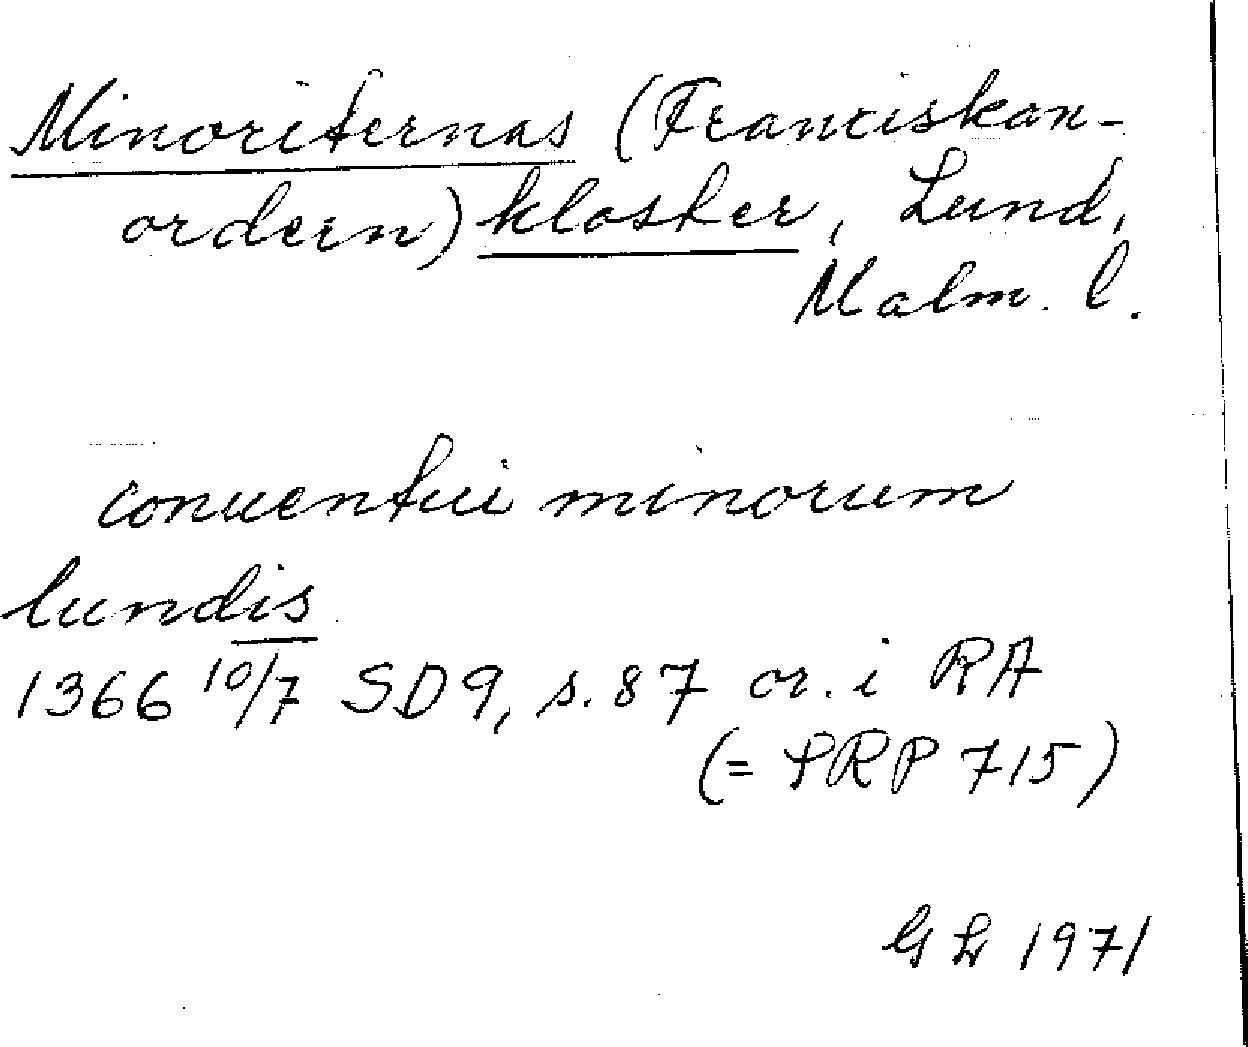 Minoriternas (Franciskan-
ordern) kloster, Lund,
Malm. l.
conuentui minorum
lundis
1366 10/7 SD9, s. 87 or. i RA
(= SRP 715)
GL 1971